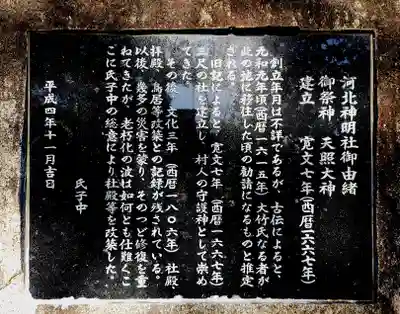 河北神明社御由緒
御祭神　天照大神
建立　寛文七年(西暦一六六七年)
創立年月は不詳であるが、古伝によると、
元和元年頃(西暦一六一五年)大竹氏なる者が
此の地に移住した頃の勧請になるものと推定
される。
旧記によると、寛文七年(西暦一六六七年)
三尺の社を建立し、村人の守護神として崇め
てきた。
その後、文化三年(西暦一八〇六年)社殿
拝殿、鳥居等改築との記録が残されている。
以後、幾多の災害を蒙り、そのつど修復を重
ねてきたが、老朽化の波は如何とも仕難く、こ
こに氏子中の総意により社殿等を改築した。
氏子中
平成四年十一月吉日